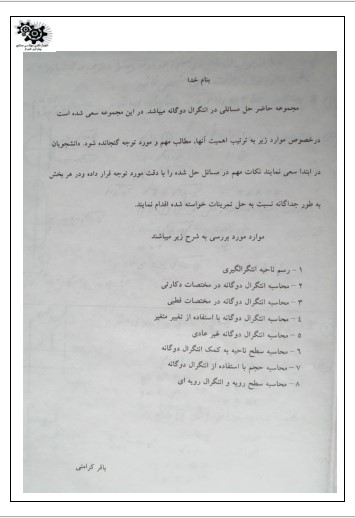 بنام خدا
مجموعه حاضر حل مسائلی در انتگرال دوگانه میباشد. در این مجموعه سعی شده است
درخصوص موارد زیر به ترتیب اهمیت آنها، مطالب مهم و مورد توجه گنجانده شود. دانشجویان
در ابتدا سعی نمایند نکات مهم در مسائل حل شده را با دقت مورد توجه قرار داده ودر هر بخش
به طور جداگانه نسبت به حل تمرینات خواسته شده اقدام نمایند.
موارد مورد بررسی به شرح زیر میباشند
۱ – رسم ناحیه انتگرالگیری
۲ – محاسبه انتگرال دوگانه در مختصات دکارتی
۳ – محاسبه انتگرال دوگانه در مختصات قطبی
٤ – محاسبه انتگرال دوگانه با استفاده از تغییر متغیر
۵ – محاسبه انتگرال دوگانه غیر عادی
۶ – محاسبه سطح ناحیه به کمک انتگرال دوگانه
۷ – محاسبه حجم با استفاده از انتگرال دوگانه
۸ – محاسبه سطح رویه و انتگرال رویه ای
باقر کرامتی